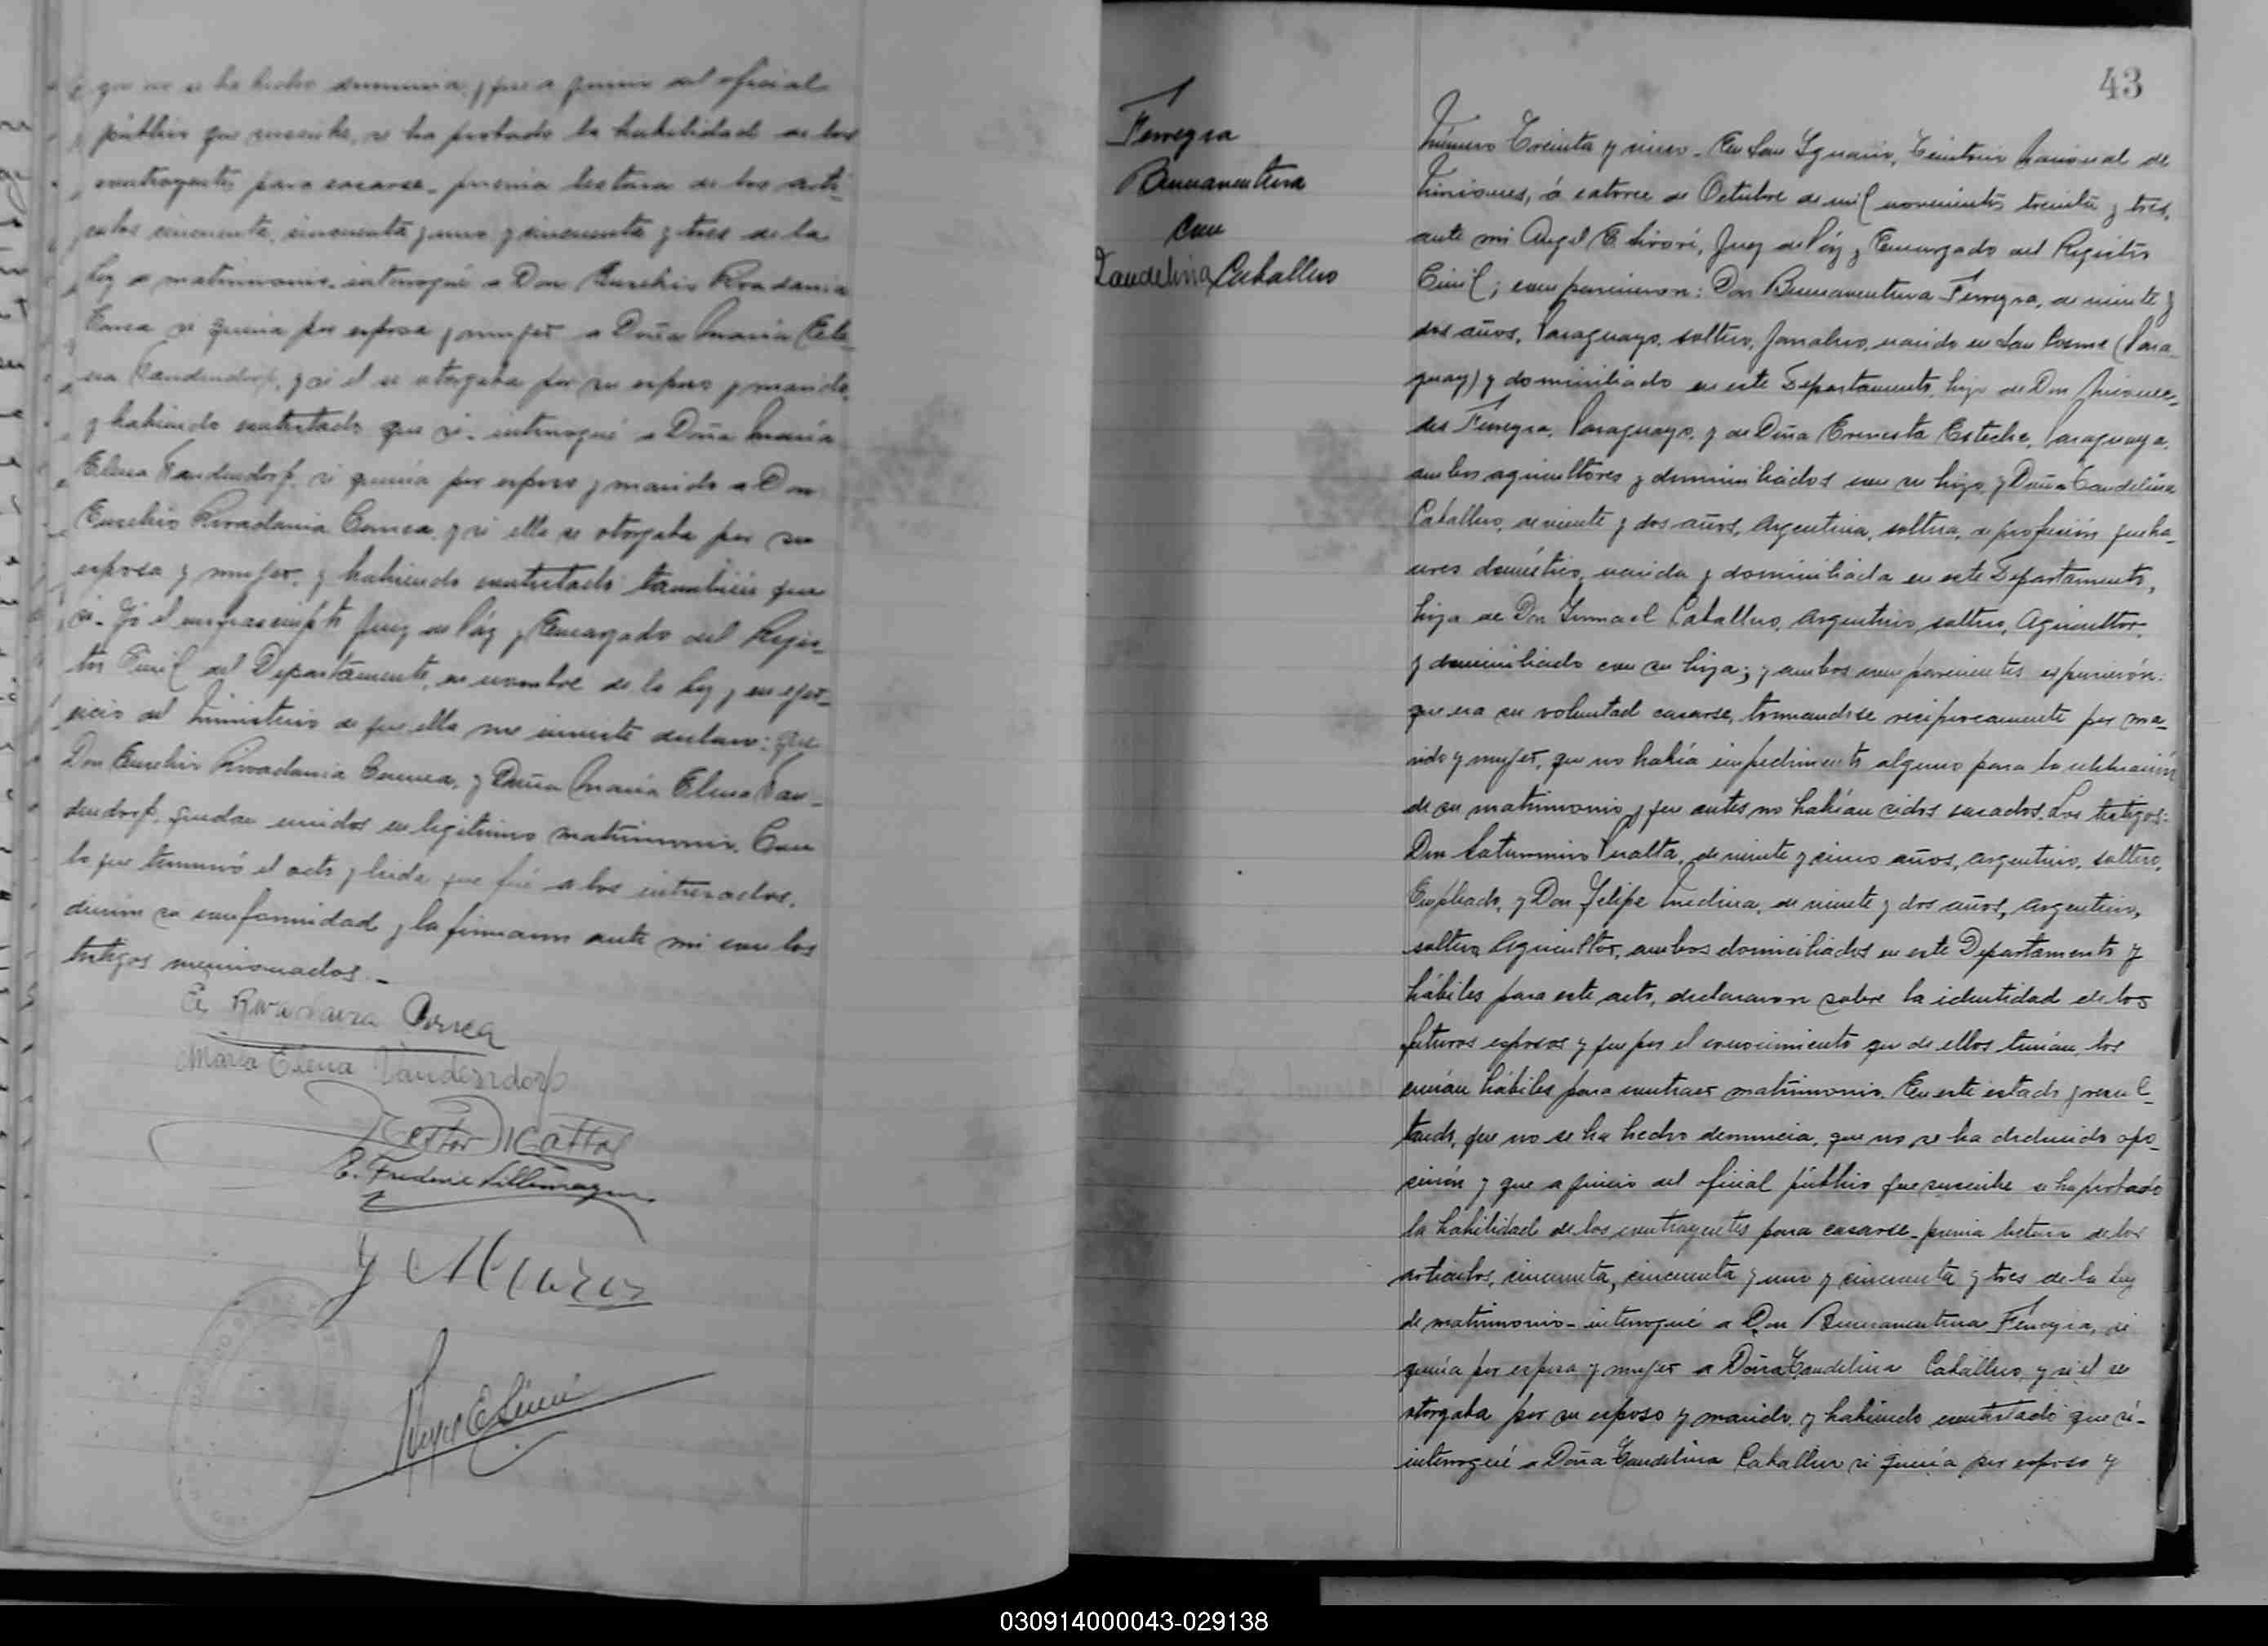 que no se ha hecho denuncia, y que a juicio del oficial
público que suscribe, se ha probado la habilidad de los
contrayentes para casarse - previa lectura de los artí-
culos cincuenta, cincuenta y uno y cincuenta y tres de la
Ley de matrimonio - interrogué a Don Eusebio Rivadavia
Correa si quería por esposa y mujer a Doña María Ele-
na Vandendorp, y si el se otorgaba por su esposo y marido,
y habiendo contestado que si - interrogué a Doña María
Elena Vandendorp, si quería por esposo y marido a Don
Eusebio Rivadavia Correa, y si ella se otorgaba por su
esposa y mujer, y habiendo contestado también que
si - Yo el infrascripto Juez de Páz y Encargado del Regis-
tro Civil del Departamento, en nombre de la Ley y en ejer-
cicio del Ministerio de que ella me inviste declaro: que
Don Eusebio Rivadavia Correa, y Doña María Elena Van-
dendorp, quedan unidos en legítimo matrimonio. Con
lo que terminó el acto y leida que fué a los interesados,
dieron su conformidad y la firmaron ante mi con los
testigos mencionados. -
E. Rivadavia Correa
María Elena Vandendorp
43
Ferreyra
Buenaventura
con
Candelina Caballero
Número Treinta y cinco - En San Ignacio, Territorio Nacional de
Misiones, á catorce de Octubre de mil novecientos treinta y tres,
ante mi Angel E. , Juez de Páz y Encargado del Registro
Civil; comparecieron: Don Buenaventura Ferreyra, de veinte y
dos años, Paraguayo, soltero, Jornalero, nacido en San Cosme (Para-
guay) y domiciliado en este Departamento, hijo de Don
Ferreyra, Paraguayo, y de Doña Ernesta Esteche, Paraguaya,
ambos agricultores y domiciliados con su hijo, y Doña Candelina
Caballero, de veinte y dos años, Argentina, soltera, de profesión queha-
ceres doméstico, nacida y domiciliada en este Departamento,
hija de Don Ismael Caballero, Argentino, soltero, Agricultor,
y domiciliado con su hija; y ambos comparecientes espusierón:
que era su voluntad casarse, tomandose reciprocamente por ma-
rido y mujer, que no había impedimento alguno para la celebración
de su matrimonio y que antes no habían sidos casados. Los testigos:
Don Saturnino Peralta, de veinte y cinco años, argentino, soltero,
Empleado, y Don Felipe Medina, de veinte y dos años, Argentino,
soltero, Agricultor, ambos domiciliados en este Departamento y
hábiles para este acto, declararon sobre la identidad de los
futuros esposos y que por el conocimiento que de ellos tenían, los
creían hábiles para contraer matrimonio. En este estado y resul-
tando, que no se ha hecho denuncia, que no se ha deducido opo-
sición y que a juicio del oficial público que suscribe se ha probado
la habilidad de los contrayentes para casarse - previa lectura de los
artículos, cincuenta, cincuenta y uno y cincuenta y tres de la Ley
de matrimonio - interrogué a Don Buenaventura Ferreyra, si
quería por esposa y mujer a Doña Candelina Caballero, y si el se
otorgaba por su esposo y marido, y habiendo contestado que si -
interrogué a Doña Candelina Caballero si quería por esposo y
030914000043-029138